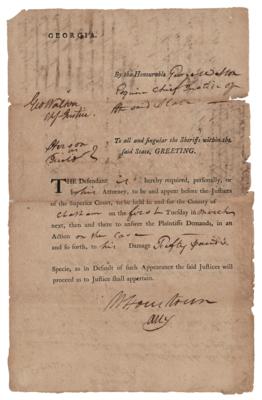 GEORGIA.
By the Honourable George Walton
Esquire Chief Justice of
the said State
Geo Walton
To all and singular the Sheriffs within the
said State, GREETING.
THE Defendant is hereby required, personally, or
by his Attorney, to be and appear before the Justices
of the Superior Court, to be held in and for the County of
Chatham on the first Tuesday in March
next, then and there to answer the Plaintiffs Demands, in
an Action on the Case
and so forth, to his Damage Fifty pounds
Specie, as in Default of such Appearance the said Justices will
proceed as to Justice shall appertain.
Houstoun
Atty